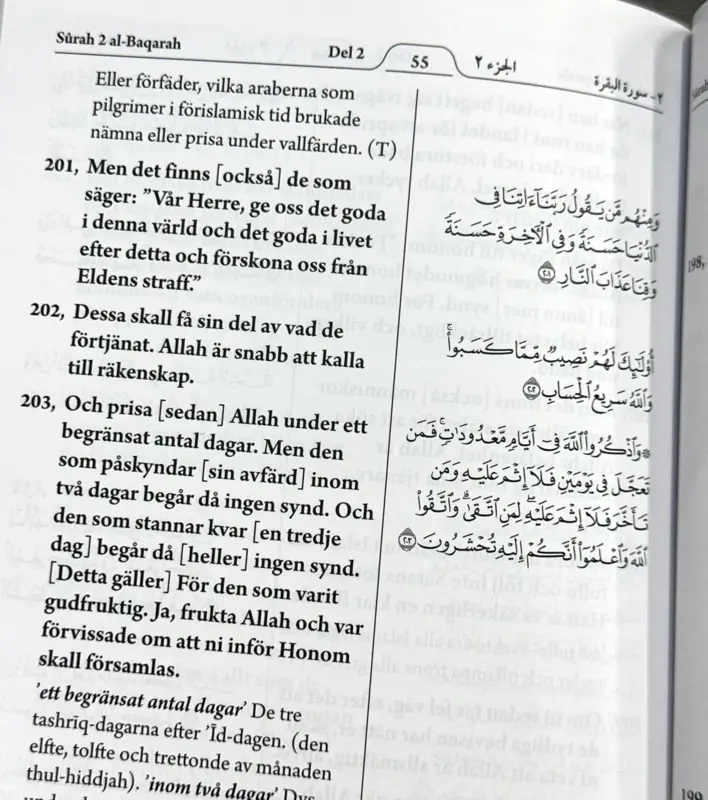 Sûrah 2 al-Baqarah Del 2 55 الجزء ٢ ٢- سورة البقرة
Eller förfäder, vilka araberna som
pilgrimer i förislamisk tid brukade
nämna eller prisa under vallfärden. (T)
201, Men det finns [också] de som
säger: ”Vår Herre, ge oss det goda
i denna värld och det goda i livet
efter detta och förskona oss från
Eldens straff.”
202, Dessa skall få sin del av vad de
förtjänat. Allah är snabb att kalla
till räkenskap.
203, Och prisa [sedan] Allah under ett
begränsat antal dagar. Men den
som påskyndar [sin avfärd] inom
två dagar begår då ingen synd. Och
den som stannar kvar [en tredje
dag] begår då [heller] ingen synd.
[Detta gäller] För den som varit
gudfruktig. Ja, frukta Allah och var
förvissade om att ni inför Honom
skall församlas.
'ett begränsat antal dagar' De tre
tashrīq-dagarna efter 'Īd-dagen. (den
elfte, tolfte och trettonde av månaden
thul-hiddjah). 'inom två dagar' Dvs
وَمِنْهُم مَّن يَقُولُ رَبَّنَآ ءَاتِنَا فِي
ٱلدُّنْيَا حَسَنَةً وَفِي ٱلْأَخِرَةِ حَسَنَةً
وَقِنَا عَذَابَ ٱلنَّارِ ٢٠١
أُوْلَٰٓئِكَ لَهُمْ نَصِيبٌ مِّمَّا كَسَبُواْۚ
وَٱللَّهُ سَرِيعُ ٱلْحِسَابِ ٢٠٢
۞وَٱذْكُرُواْ ٱللَّهَ فِيٓ أَيَّامٍ مَّعْدُودَٰتٍۚ فَمَن
تَعَجَّلَ فِي يَوْمَيْنِ فَلَآ إِثْمَ عَلَيْهِ وَمَن
تَأَخَّرَ فَلَآ إِثْمَ عَلَيْهِۖ لِمَنِ ٱتَّقَىٰۗ وَٱتَّقُواْ
ٱللَّهَ وَٱعْلَمُوٓاْ أَنَّكُمْ إِلَيْهِ تُحْشَرُونَ ٢٠٣
198,
199